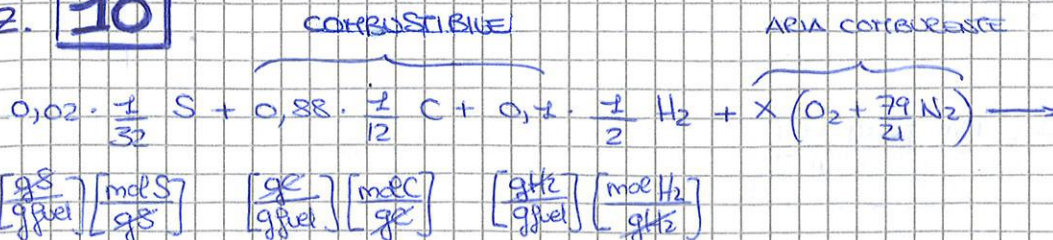 2. 10 COMBUSTIBILE ARIA COMBURENTE
0,02 · 1/32 S + 0,88 · 1/12 C + 0,1 · 1/2 H2 + X (O2 + 79/21 N2) →
[gS/gfuel] [molS/gS] [gC/gfuel] [molC/gC] [gH2/gfuel] [mol H2/gH2]